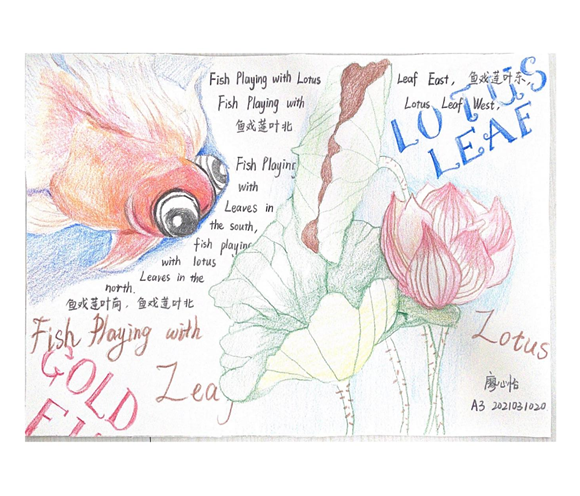 Fish Playing with Lotus
Leaf East, 鱼戏莲叶东,
Fish Playing with
Lotus Leaf West,
鱼戏莲叶北
LOTUS
LEAF
Fish Playing
with
Leaves in
the south,
fish playing
with lotus
Leaves in the
north.
鱼戏莲叶南, 鱼戏莲叶北
Fish Playing with
Lotus
GOLD
Leaf
廖心怡
A3 2021031020